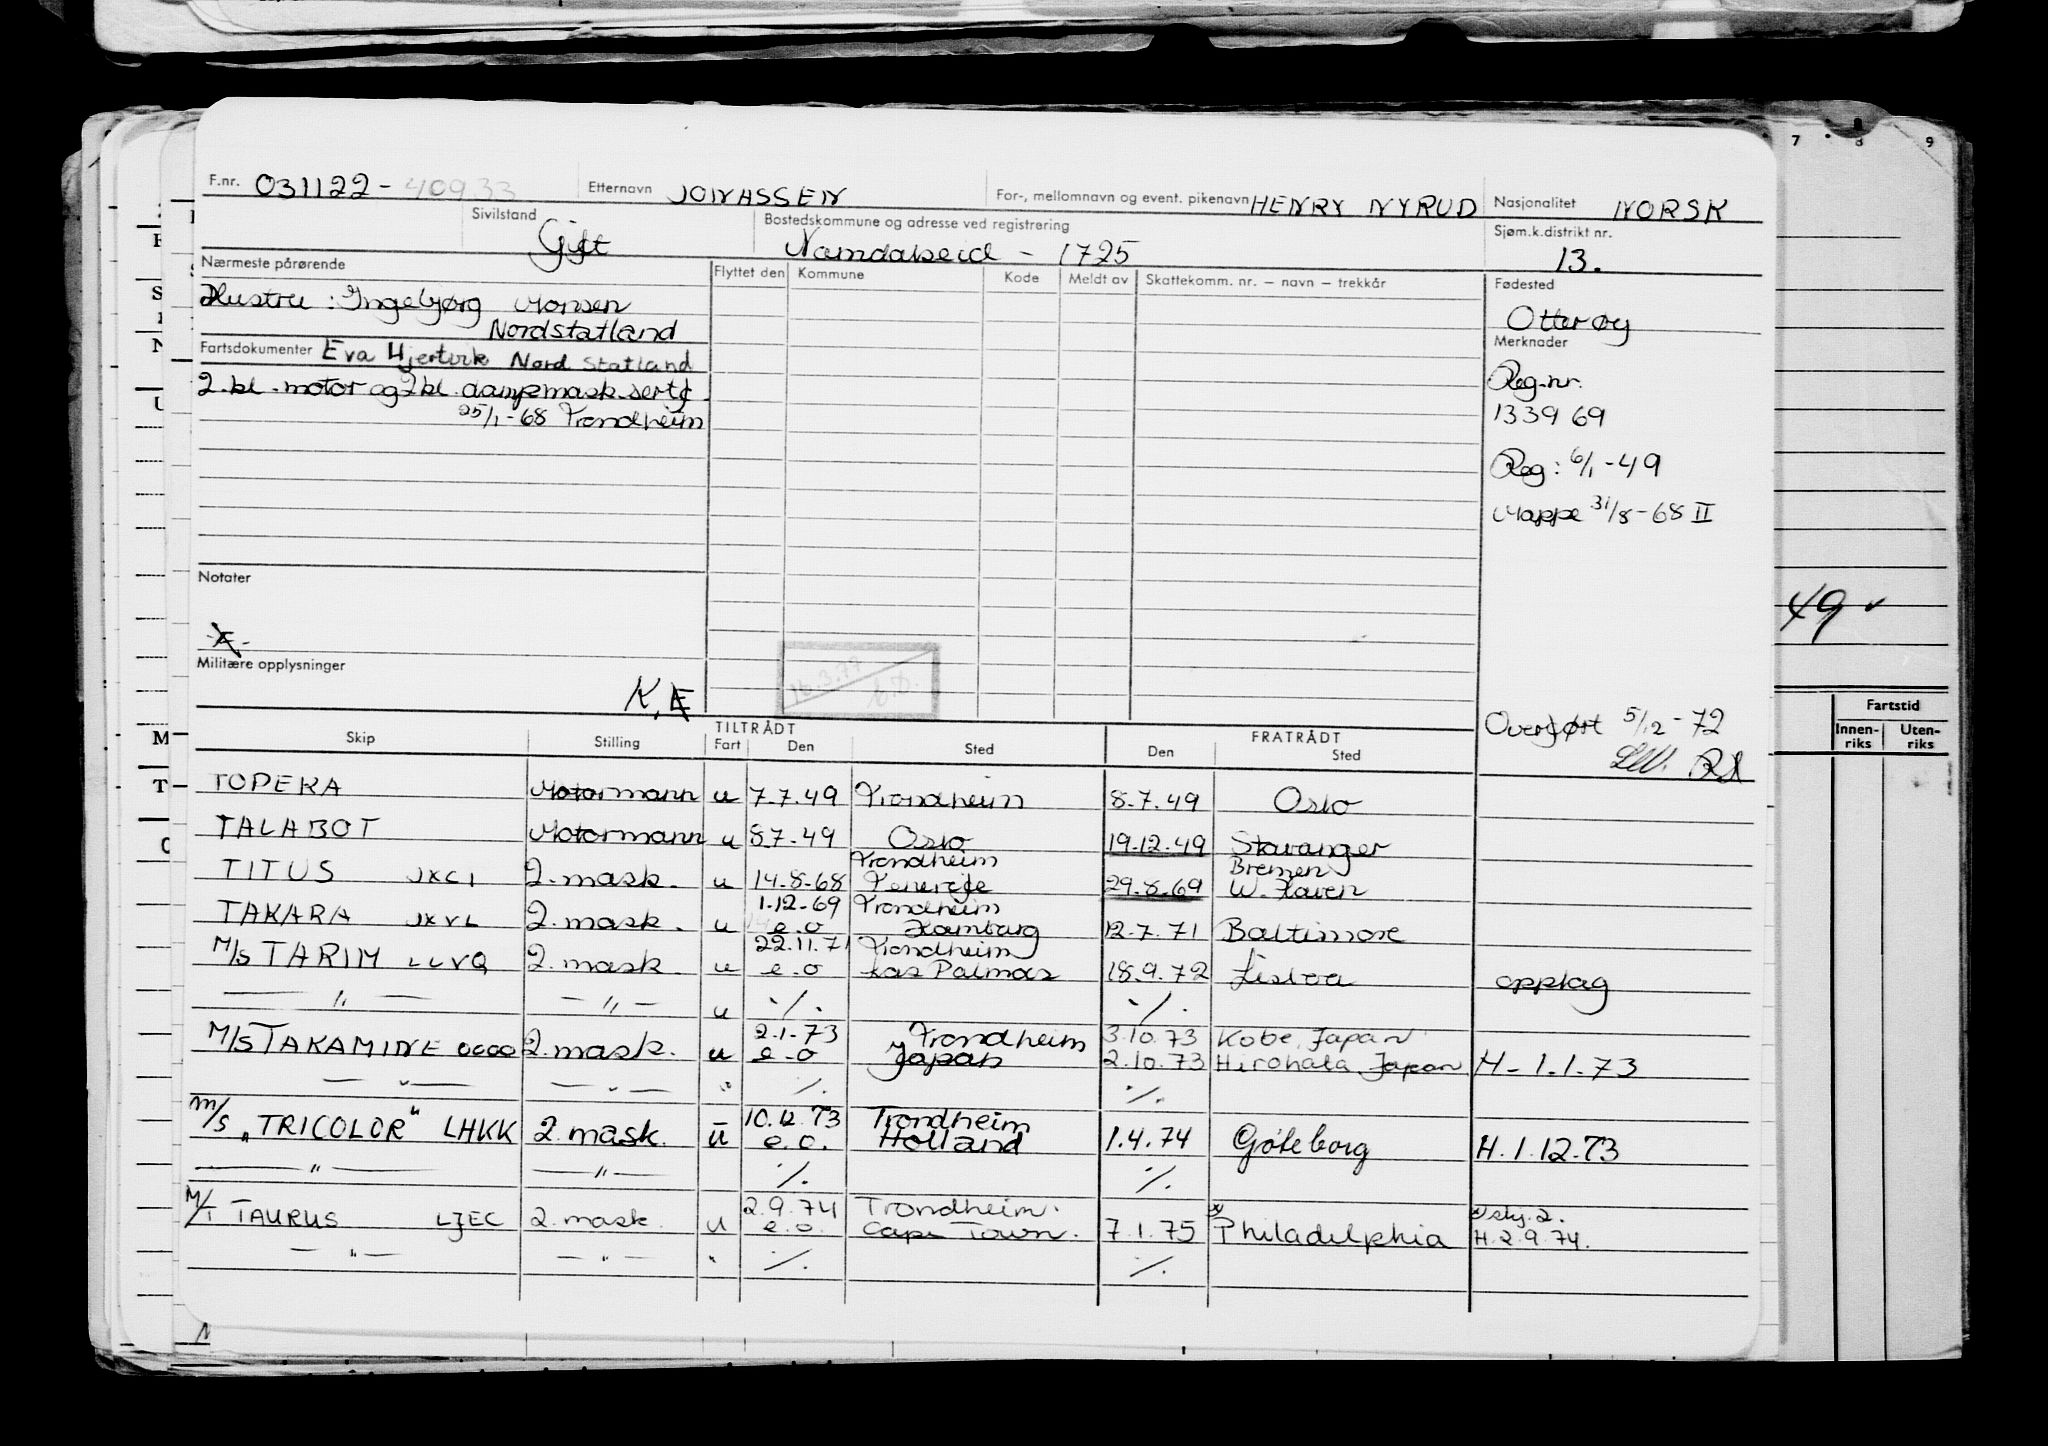 7 8 9
F.nr. 031122-40933 Etternavn JONASSEN For-, mellomnavn og event. pikenavn HENRY NYRUD Nasjonalitet NORSK
Sivilstand Gift Bostedskommune og adresse ved registrering Namdalseid - 1725 Sjøm.k.distrikt nr. 13.
Nærmeste pårørende Flyttet den Kommune Kode Meldt av Skattekomm. nr. – navn – trekkår Fødested
Hustru: Ingebjørg Monsen Otterøy
Nordstatland
Merknader
Fartsdokumenter Eva Hjertvik Nord Statland
2.kl. motor og 2kl. dampmask.sertf Reg.nr.
25/1-68 Trondheim 1339 69
Reg: 6/1-49
Mappe 31/8-68 II
Notater
49 ✓
A.
Militære opplysninger
16.3.79
K. E
Fartstid
Innen-riks Uten-riks
Overført 5/12-72
TILTRÅDT FRATRÅDT
Skip Stilling Fart Den Sted Den Sted
TOPEKA Motormann u 7.7.49 Trondheim 8.7.49 Oslo
TALABOT Motormann u 8.7.49 Oslo 19.12.49 Stavanger
Trondheim Bremen
TITUS JXCI 2.mask. u 14.8.68 Tenerife 29.8.69 W. Haven
1.12.69 Trondheim
TAKARA JXVL 2.mask. u e.o Hamburg 12.7.71 Baltimore
22.11.71 Trondheim
M/S TARIM LLVQ 2.mask. u e.o Las Palmas 18.9.72 Lisboa opplag
— " — — " — u ·/. ·/.
2.1.73 Trondheim 3.10.73 Kobe, Japan
M/S TAKAMINE 2.mask. u e.o Japan 2.10.73 Hirohata, Japan H-1.1.73
— " — — " — " ·/. ·/.
10.12.73 Trondheim
M/S "TRICOLOR" LHKK 2.mask. u e.o. Holland 1.4.74 Göteborg H.1.12.73
— " — — " — ·/. ·/.
2.9.74 Trondheim. x) x) sty.2.
M/T TAURUS LJEC 2.mask. u e.o. Cape Town. 7.1.75 Philadelphia H.2.9.74.
— " — — " — " ·/. ·/.